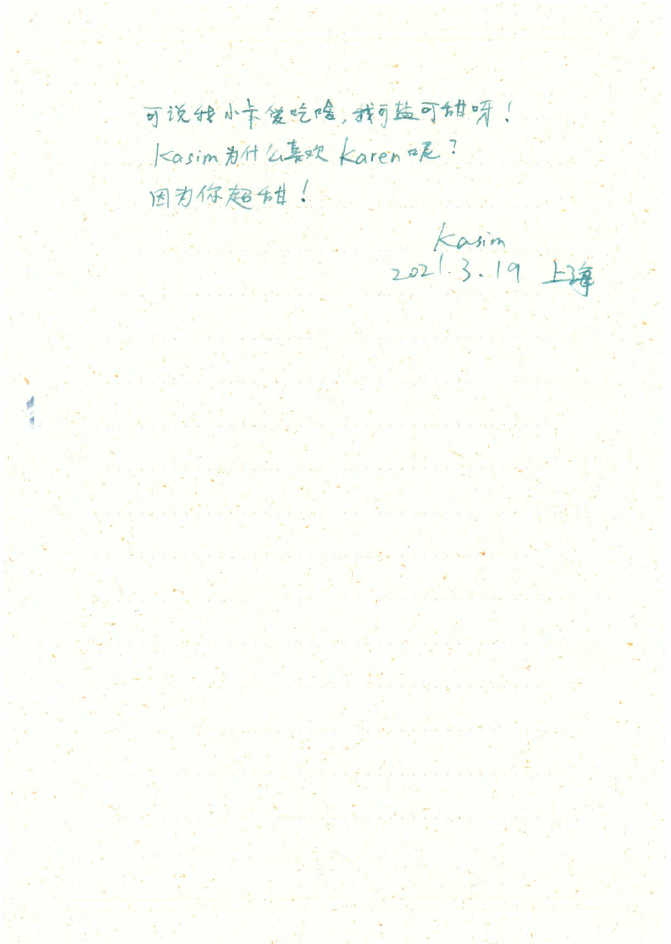 可说我小卡爱吃啥，我可盐可甜呀！
Kasim为什么喜欢Karen呢？
因为你超甜！
Kasim
2021.3.19 上海